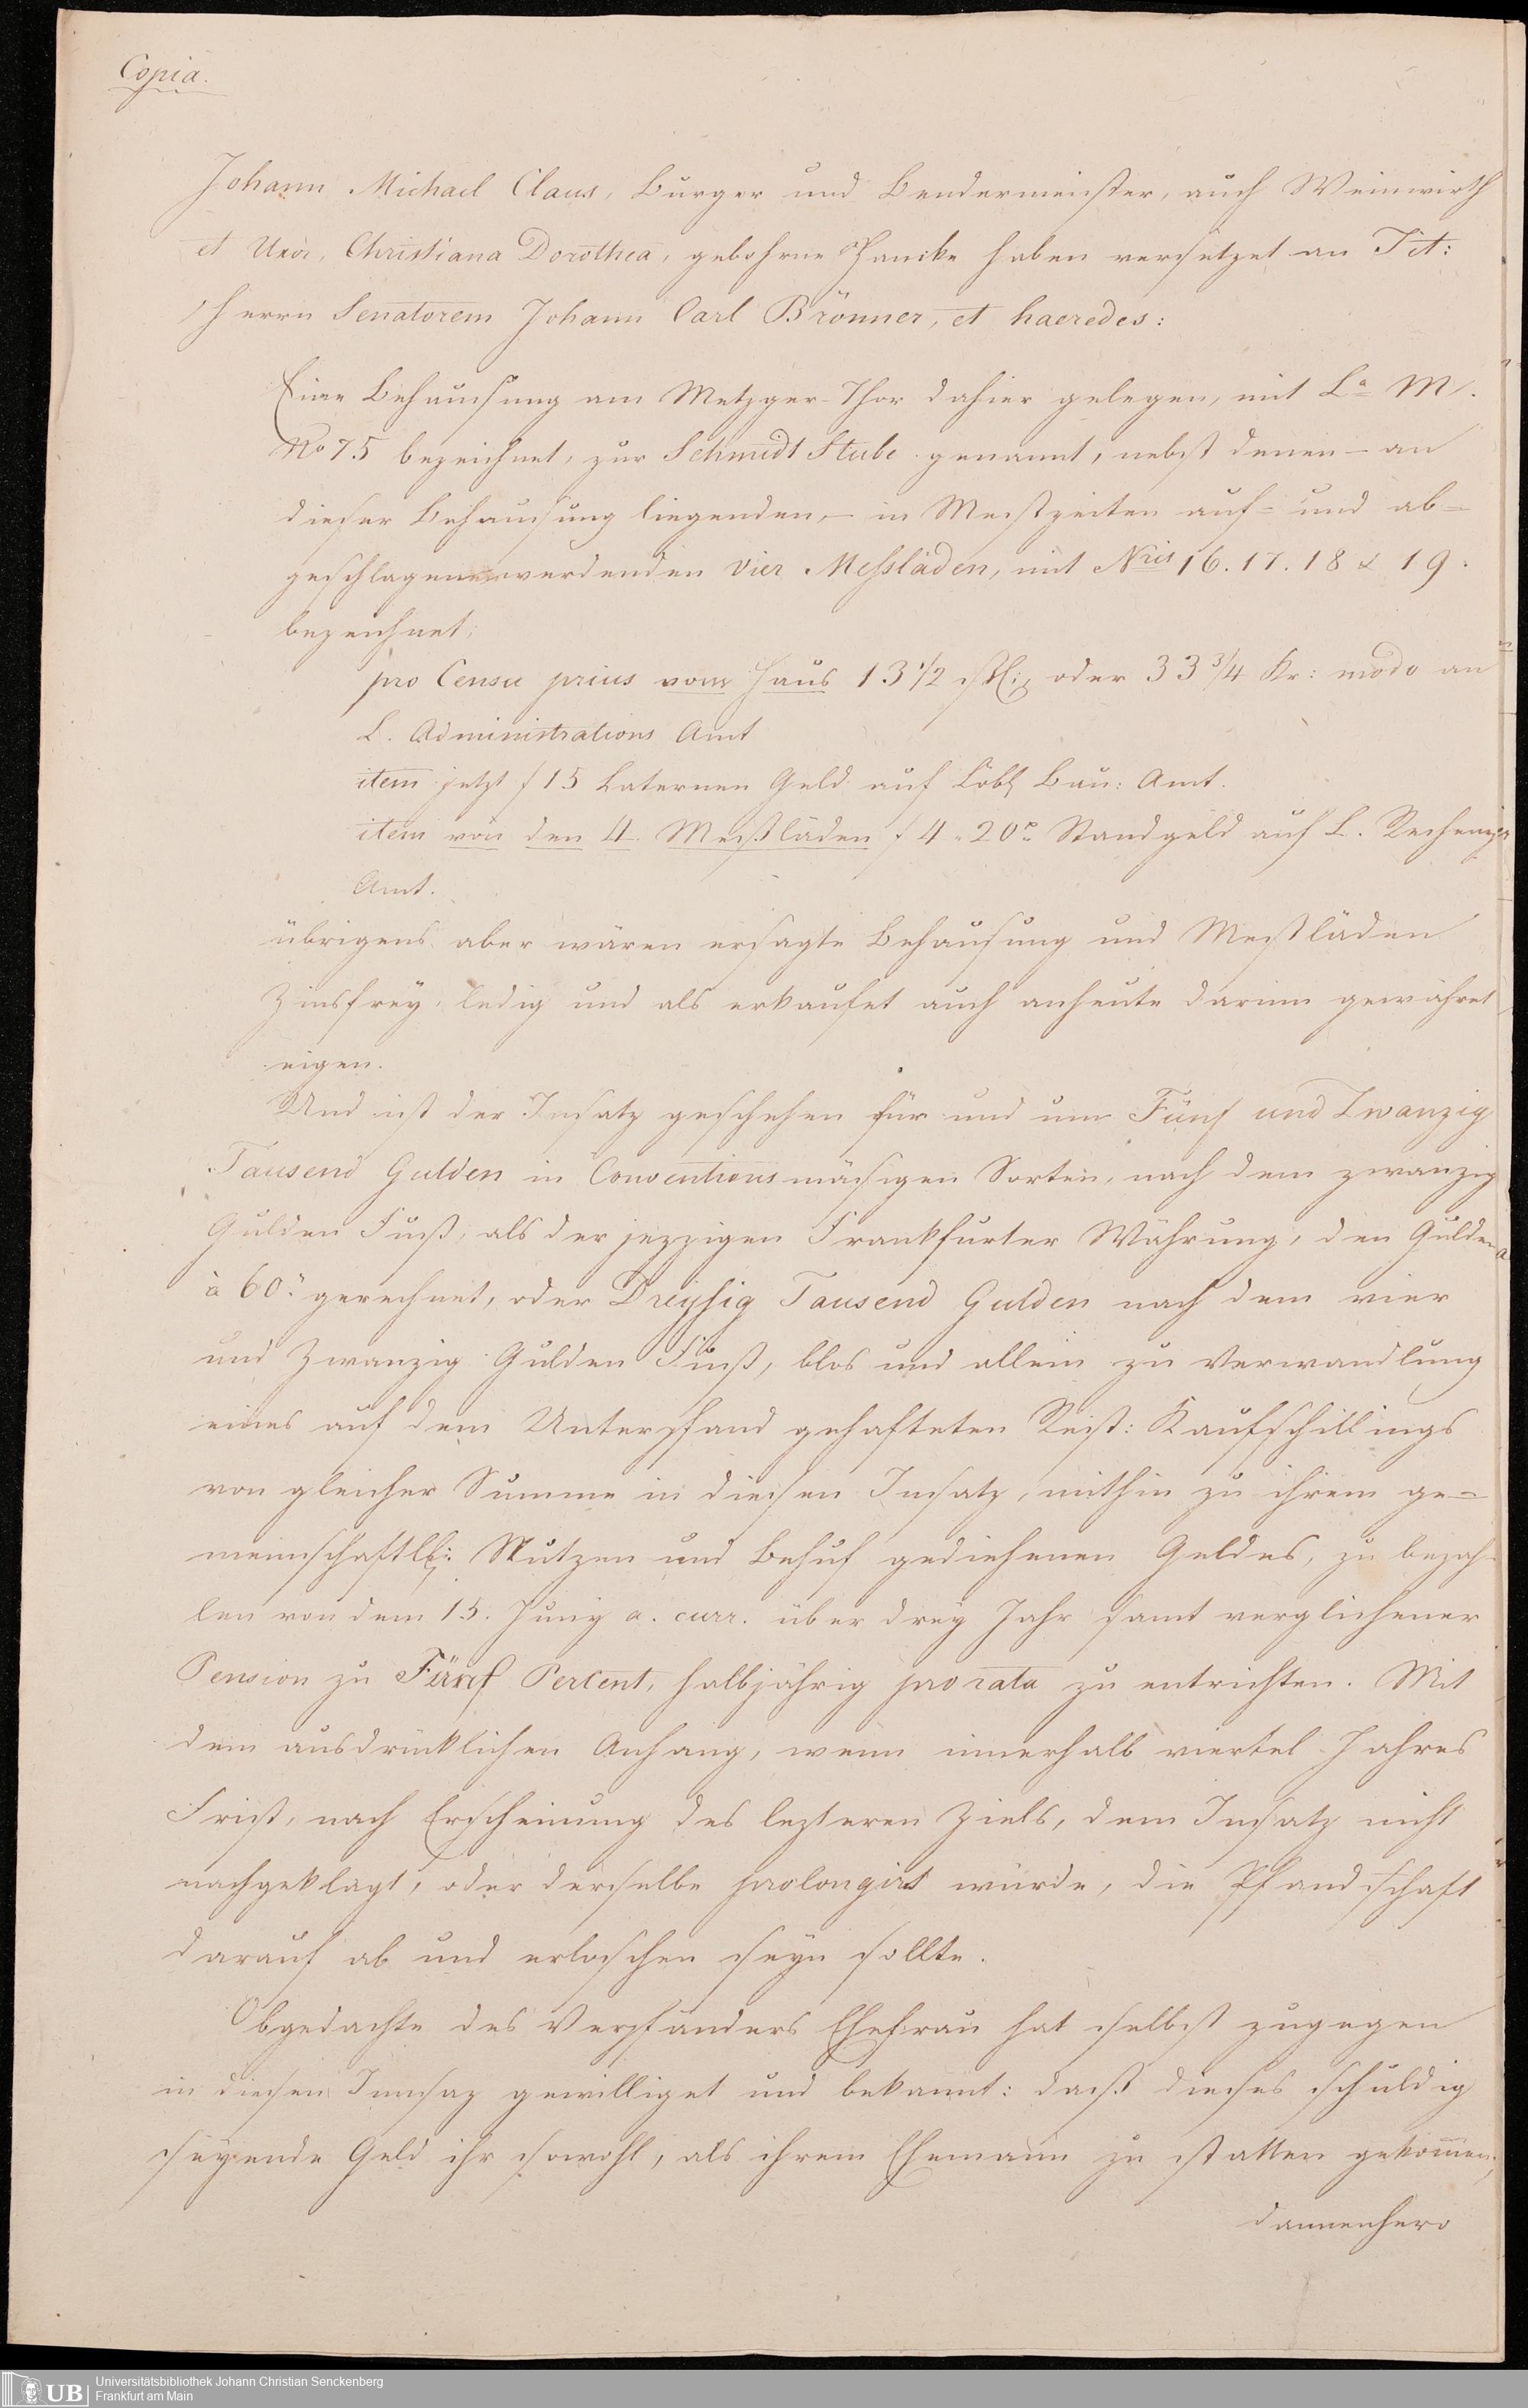 Copia.
Johann Michael Claus, Burger und Bendermeister, auch Weinwirth
et Uxor, Christiana Dorothea, gebohrne Hancke haben versetzet an Tit:
Herrn Senatorem Johann Carl Brönner, et haeredes:
Eine Behausung am Metzger-Thor dahier gelegen, mit La M.
No 75 bezeichnet, zur Schmidt Stube genannt, nebst denen – an
dieser Behausung liegenden, – in Messzeiten auf- und ab-
geschlagen werdenden vier Messläden, mit Nris 16. 17. 18 & 19.
bezeichnet;
pro Censu prius vom Haus 13 1/2 oder 33 3/4 Kr: modo an
L. Administrations Amt
item jetzt f 15 Laternen Geld auf Löbl Bau: Amt.
item von den 4 Meßläden f 4 „ 20 Standgeld auf L. Recheney
Amt.
übrigens aber wären ersagte Behausung und Messläden
Zinsfrey, ledig und als erkaufet auch anheute darinn gewähret
eigen.
Und ist der Insatz geschehen für und um Fünf und Zwanzig
Tausend Gulden in Conventionsmäsigen Sorten, nach dem zwanzig
Gulden Fuß, als der jezzigen Frankfurter Währung, den Gulden
à 60 gerechnet, oder Dreyssig Tausend Gulden nach dem vier
und Zwanzig Gulden Fuß, blos und allein zu Verwandlung
eines auf dem Unterpfand gehafteten Rest: Kaufschillings
von gleicher Summe in diesen Insatz, mithin zu ihrem ge-
meinschaftl: Nutzen und Behuf gediehenen Geldes, zu bezah-
len von dem 15. Juny a. curr. über drey Jahr samt verglichener
Pension zu Fünf PerCent, halbjährig pro rata zu entrichten. Mit
dem ausdrücklichen Anhang, wenn innerhalb viertel Jahres
Frist, nach Erscheinung des lezteren Ziels, dem Insatz nicht
nachgeklagt, oder derselbe prolongirt würde, die Pfandschaft
darauf ab und erloschen seyn sollte.
Obgedachte des Verpfänders Ehefrau hat selbst zugegen
in diesen Innsaz gewilliget und bekannt: daß dieses schuldig
seyende Geld ihr sowohl, als ihrem Ehemann zu statten gekommen,
dannenhero
UB Universitätsbibliothek Johann Christian Senckenberg
Frankfurt am Main